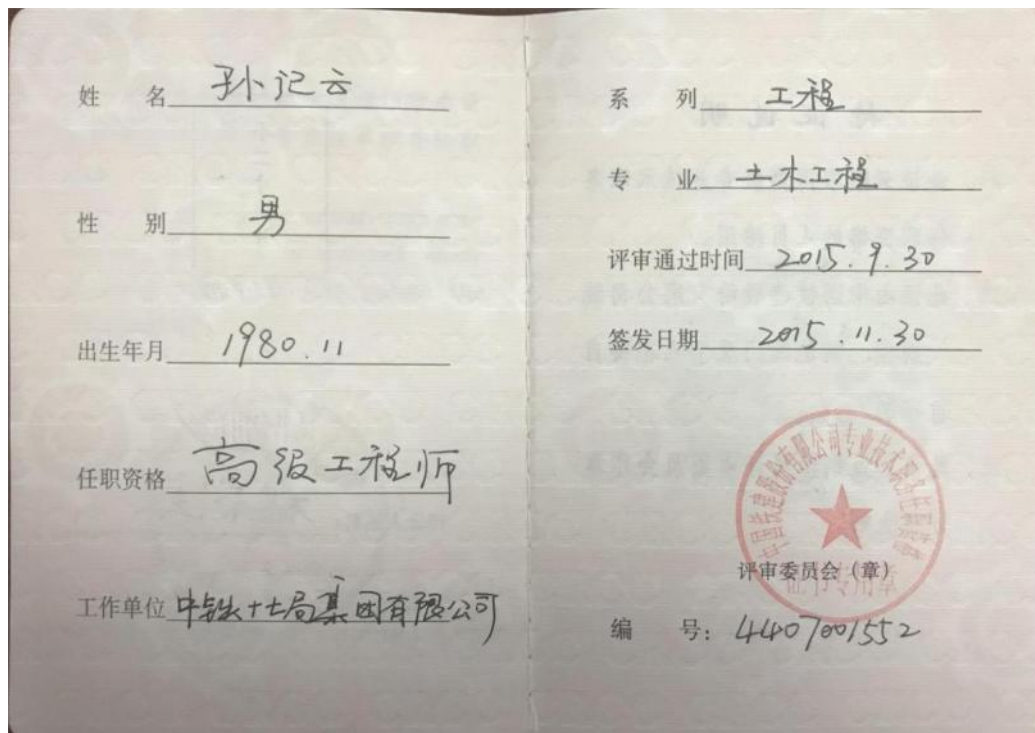 姓 名 孙记云
性 别 男
出生年月 1980.11
任职资格 高级工程师
工作单位 中铁十七局集团有限公司
系 列 工程
专 业 土木工程
评审通过时间 2015.9.30
签发日期 2015.11.30
中国铁建股份有限公司专业技术职务任职资格
评审委员会(章)
证书专用章
编 号: 4407001552